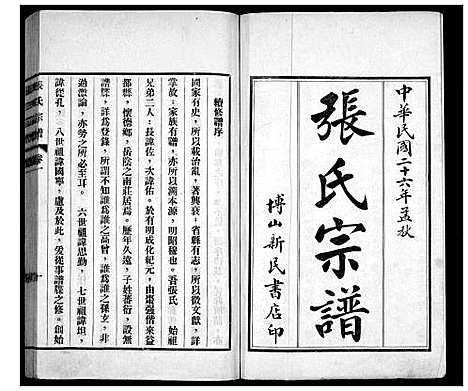 中華民國二十六年孟秋
張氏宗譜
博山新民書店印
續修譜序
國家有史，所以載治亂，著興衰，省縣有志，所以徵文獻，詳
掌故；家族有譜，亦所以溯本源，明昭穆也。吾張氏　始祖
兄弟二人：長諱佐，次諱佑。於有明成化紀元，由棗强偕來益
都縣，懷德鄉，岳陰之南莊居焉。歷年久遠，子姓蕃衍，設非
譜牒，詳爲登錄，所謂不知誰爲誰之高曾，誰爲誰之孫玄，非
過激論，亦勢之所必至耳。　六世祖諱思勤，　七世祖諱坦，
諱從孔，　八世祖諱國寧，慮及於此，爰從事譜牒之修。創始
張氏宗譜
卷一